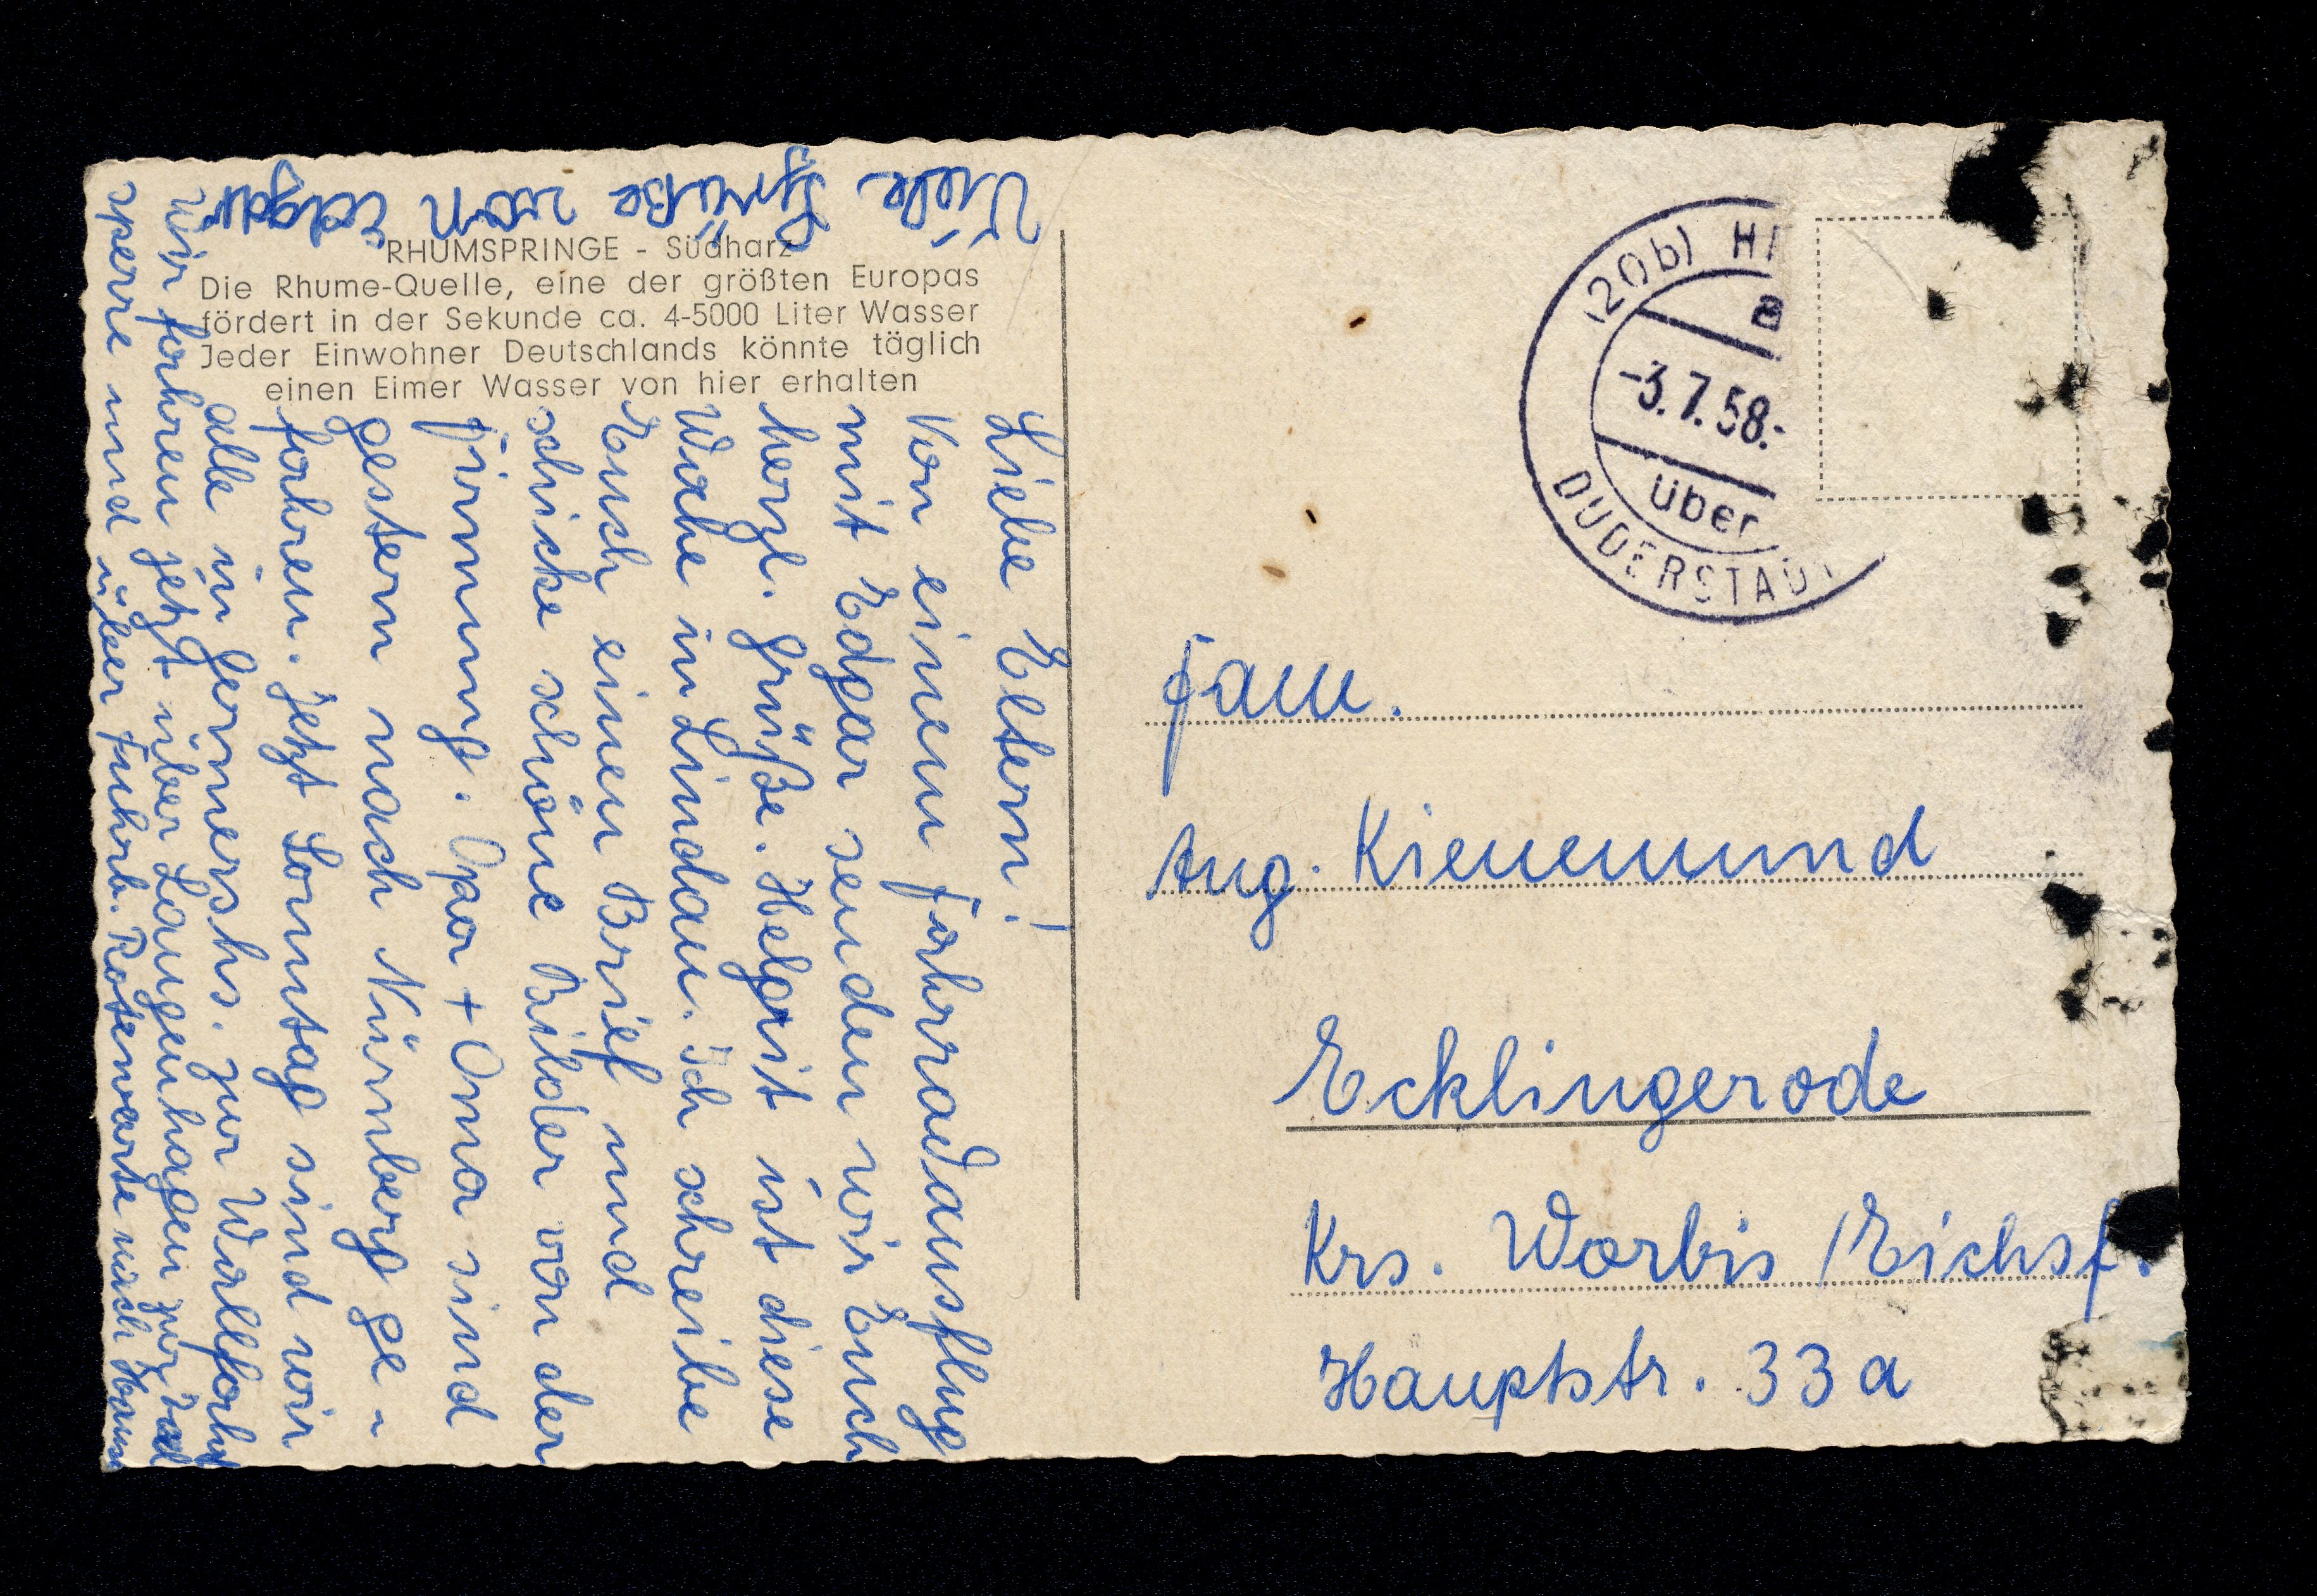 RHUMSPRINGE - Südharz
Die Rhume-Quelle, eine der größten Europas
fördert in der Sekunde ca. 4-5000 Liter Wasser
Jeder Einwohner Deutschlands könnte täglich
einen Eimer Wasser von hier erhalten
Liebe Eltern!
Von einem Fahrradausflug
mit Edgar senden wir Euch
herzl. Grüße. Helgrit ist diese
Woche in Lindau. Ich schreibe
Euch einen Brief und
schicke schöne Bilder von der
Firmung. Opa + Oma sind
gestern nach Nürnberg ge-
fahren. Jetzt Sonntag sind wir
alle in Germershs. zur Wallfahrt
Wir fahren jetzt über Langenhagen zur
sperre und über Fuhrb. Rotenwarte nach Haus
Viele Grüße von Edgar
(20b) HI
a
-3.7.58.-
über
DUDERSTADT
Fam.
Aug. Kienemund
Ecklingerode
Krs. Worbis / Eichsf.
Hauptstr. 33a